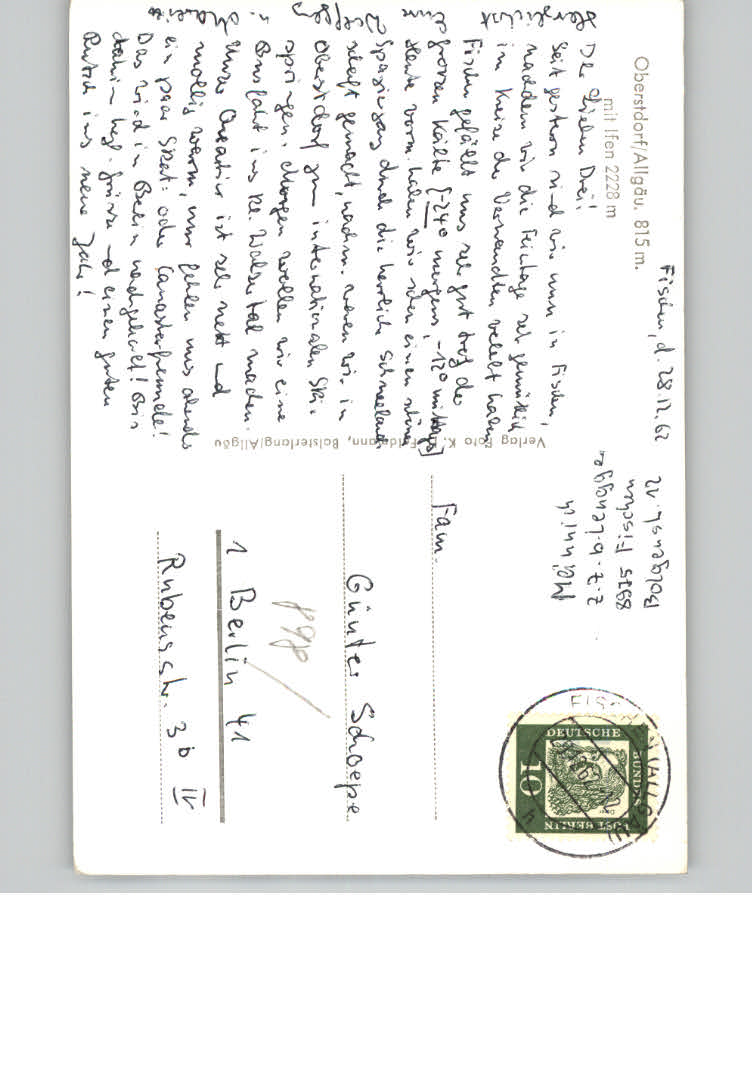 Oberstdorf/Allgäu, 815 m.
mit Ifen 2228 m
Fischen, d. 28.12.62
Ihr Lieben Drei!
Seit gestern sind wir nun in Fischen,
nachdem wir die Feiertage sehr gemütlich
im Kreise der Verwandten verlebt haben
Fischen gefällt uns sehr gut trotz der
grossen Kälte (-24° morgens, -12° mittags)
Heute vorm. haben wir schon einen schönen
Spaziergang durch die herrliche Schneeland-
schaft gemacht, nachm. waren wir in
Oberstdorf zum internationalen Ski-
springen. Morgen wollen wir eine
Busfahrt ins Kl. Walsertal machen.
Unser Quartier ist sehr nett und
mollig warm, nur fehlen uns abends
ein paar Skat- oder Canastafreunde!
Das wird in Berlin nachgeholt! Bis
dahin herzl. Grüsse und einen guten
Rutsch ins neue Jahr!
Herzlichst
Verlag Foto K. Feldmann, Bolsterlang/Allgäu
z. Z. b. Lenagge
8975 Fischen
Bolgenstr. 12
Fam.
Günter Schoepe
898
1 Berlin 41
Rubensstr. 3b IV
DEUTSCHE
BUNDES
POST BERLIN
10
FISCHEN (ALLGÄU)